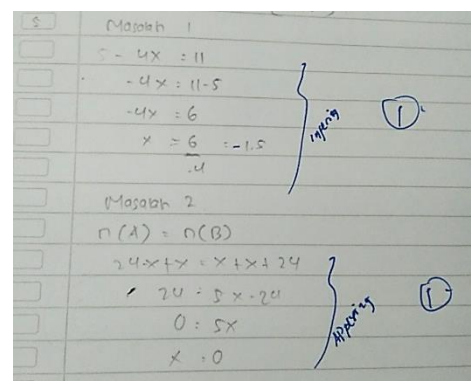 5
Masalah 1
5 - 4x = 11
-4x = 11-5
-4x = 6
x = 6/-4 = -1.5
Inferring
1
Masalah 2
n(A) = n(B)
24-x+x = x+x+24
24 = 5x-24
0 = 5x
x = 0
Applying
1